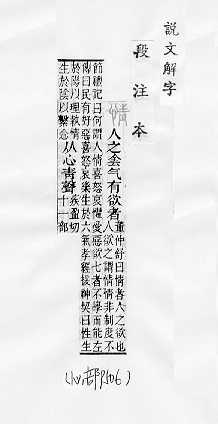 說文解字
段注本
情 人之侌气有欲者 董仲舒曰情者人之欲也
人欲之謂情情非制度不
節禮記曰何謂人情喜怒哀懼愛惡欲七者不學而能左
傳曰民有好惡喜怒哀樂生於六氣孝經援神契曰性生
於陽以理執情
生於陰以繫念 从心青聲 疾盈切
十一部
(心部P506)